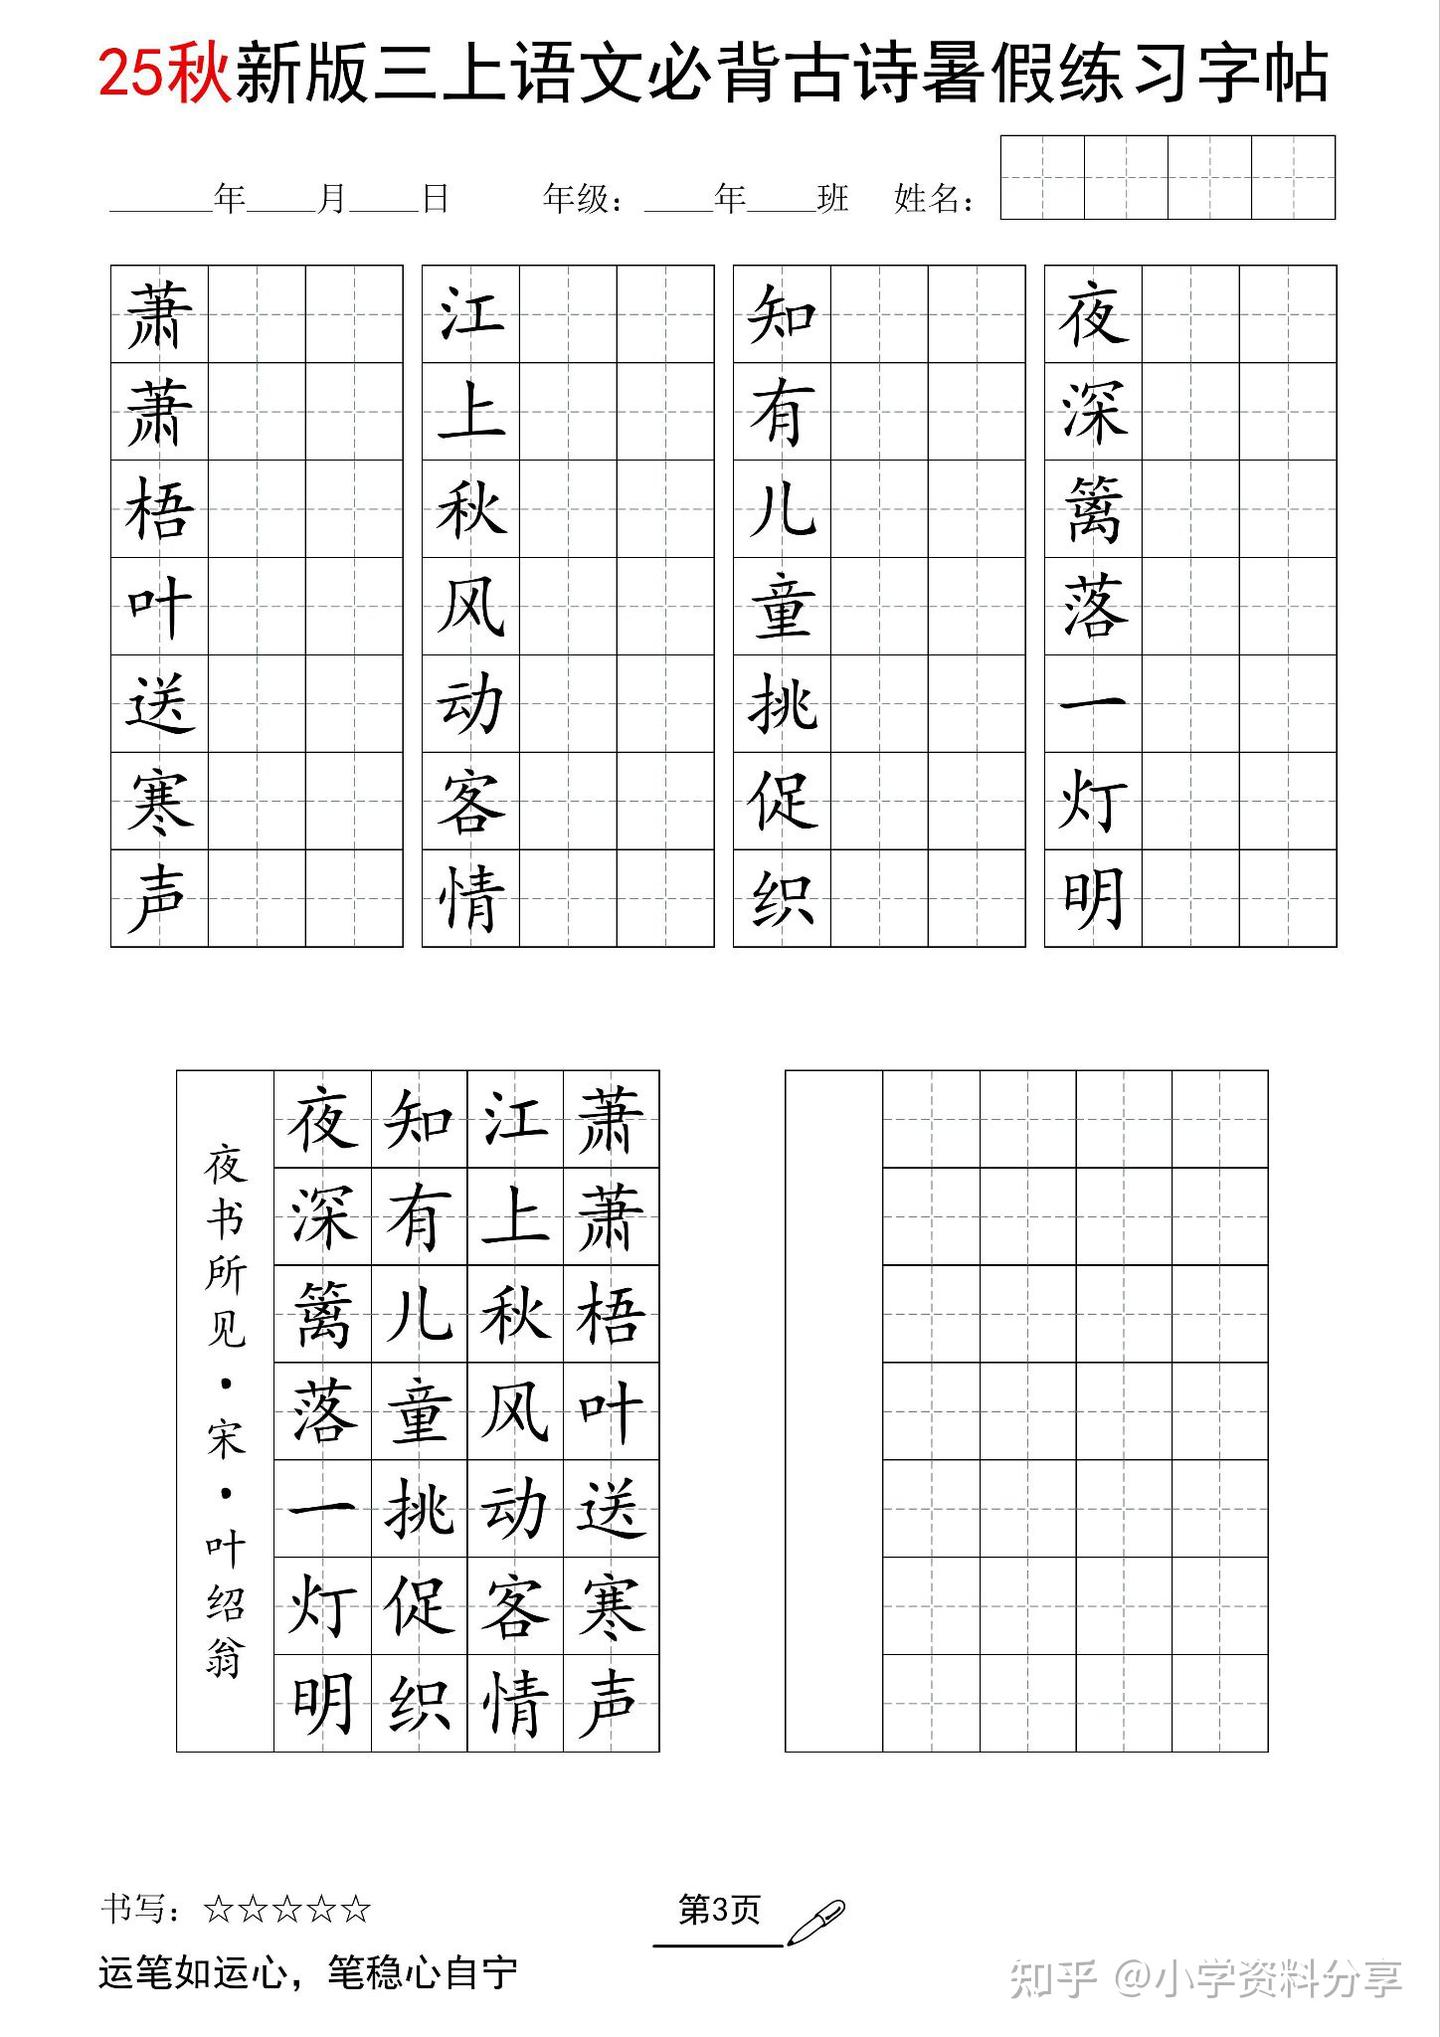 25秋新版三上语文必背古诗暑假练习字帖
______年____月____日 年级：____年____班 姓名：
萧萧梧叶送寒声
江上秋风动客情
知有儿童挑促织
夜深篱落一灯明
萧萧梧叶送寒声
江上秋风动客情
知有儿童挑促织
夜深篱落一灯明
夜书所见·宋·叶绍翁
书写：☆☆☆☆☆
第3页
运笔如运心，笔稳心自宁
知乎 @小学资料分享